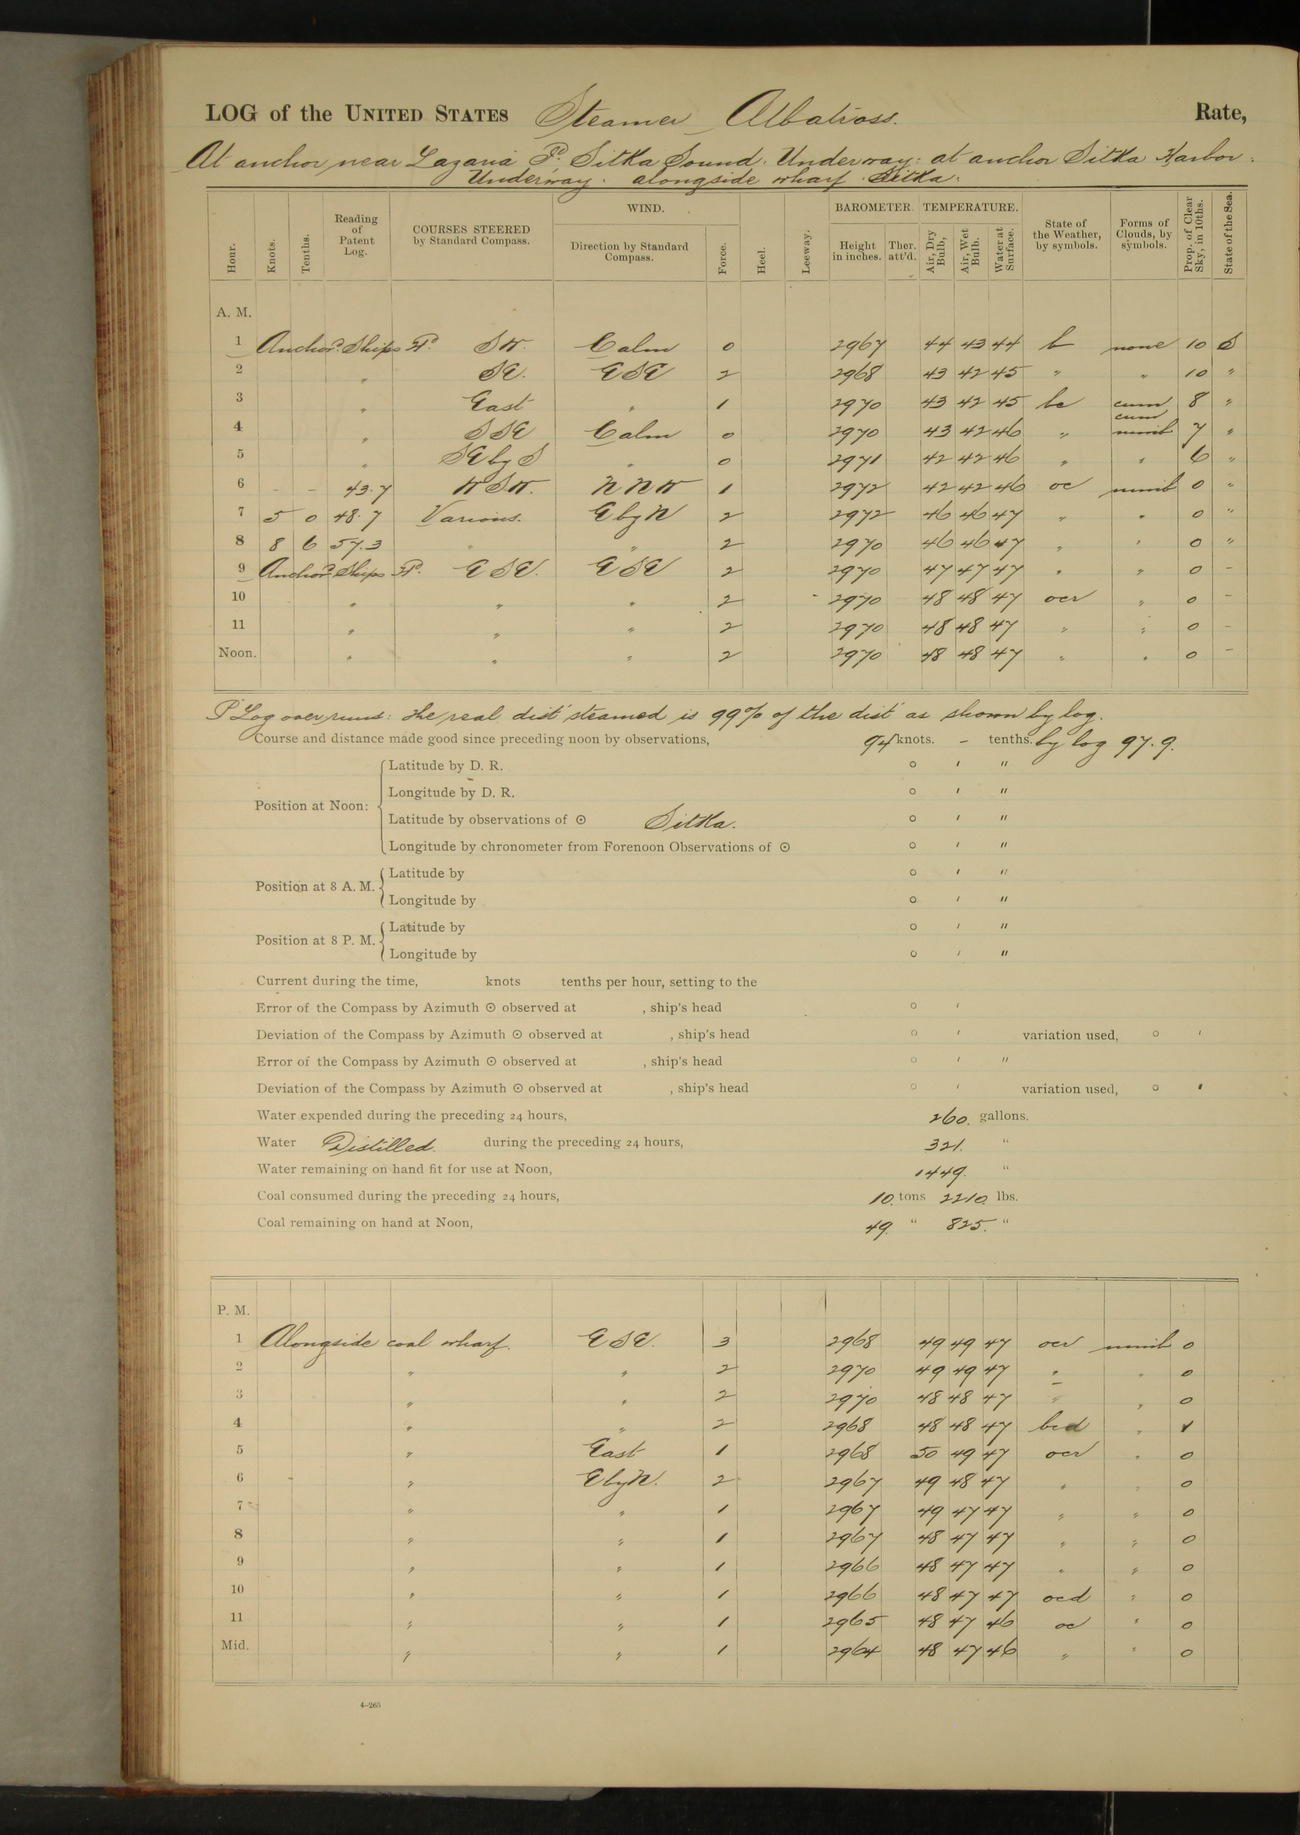 LOG of the UNITED STATES Steamer Albatross. Rate,
At anchor near Lazaria Pt. Sitka Sound. Underway: at anchor Sitka Harbor.
Underway. alongside wharf Sitka.
Hour. Knots. Tenths. Reading of Patent Log. COURSES STEERED by Standard Compass. WIND. Direction by Standard Compass. Force. Heel. Leeway. BAROMETER. Height in inches. Ther. att'd. TEMPERATURE. Air, Dry Bulb, Air, Wet Bulb. Water at Surface. State of the Weather, by symbols. Forms of Clouds, by symbols. Prop. of Clear Sky, in 10ths. State of the Sea.
A. M.
1 Anchord. Ships Hd. SW. Calm 0 2967 44 43 44 b none 10 S
2 " SE. ESE 2 2968 43 42 45 " " 10 "
3 " East " 1 2970 43 42 45 bc cum 8 "
4 " SSE Calm 0 2970 43 42 46 " cum nimb 7 "
5 " SE by S " 0 2971 42 42 46 " " 6 "
6 - - 43.7 WSW. NNW 1 2972 42 42 46 oc nimb 0 "
7 5 0 48.7 Various. E by N 2 2972 46 46 47 " " 0 "
8 8 6 57.3 " " 2 2970 46 46 47 " " 0 "
9 Anchord Ships Hd. ESE. ESE 2 2970 47 47 47 " " 0 -
10 " " " 2 2970 48 48 47 ocr " 0 -
11 " " " 2 2970 48 48 47 " " 0 -
Noon. " " " 2 2970 48 48 47 " " 0 -
P Log overruns: the real dist steamed is 99% of the dist as shown by log.
Course and distance made good since preceding noon by observations, 94 knots. - tenths. by log 97.9.
Position at Noon: Latitude by D. R. ° ' "
Longitude by D. R. ° ' "
Latitude by observations of ☉ Sitka. ° ' "
Longitude by chronometer from Forenoon Observations of ☉ ° ' "
Position at 8 A. M. Latitude by ° ' "
Longitude by ° ' "
Position at 8 P. M. Latitude by ° ' "
Longitude by ° ' "
Current during the time, knots tenths per hour, setting to the
Error of the Compass by Azimuth ☉ observed at , ship's head ° '
Deviation of the Compass by Azimuth ☉ observed at , ship's head ° ' variation used, ° '
Error of the Compass by Azimuth ☉ observed at , ship's head ° ' "
Deviation of the Compass by Azimuth ☉ observed at , ship's head ° ' variation used, ° '
Water expended during the preceding 24 hours, 260. gallons.
Water Distilled. during the preceding 24 hours, 321. "
Water remaining on hand fit for use at Noon, 1449. "
Coal consumed during the preceding 24 hours, 10. tons 2210. lbs.
Coal remaining on hand at Noon, 49. " 825. "
P. M.
1 Alongside coal wharf. ESE. 3 2968 49 49 47 ocr nimb 0
2 " " 2 2970 49 49 47 " " 0
3 " " 2 2970 48 48 47 " " 0
4 " " 2 2968 48 48 47 bcd " 1
5 " East 1 2968 50 49 47 ocr " 0
6 " E by N. 2 2967 49 48 47 " " 0
7 " " 1 2967 49 47 47 " " 0
8 " " 1 2967 48 47 47 " " 0
9 " " 1 2966 48 47 47 " " 0
10 " " 1 2966 48 47 47 ocd " 0
11 " " 1 2965 48 47 46 oc " 0
Mid. " " 1 2964 48 47 46 " " 0
4-265